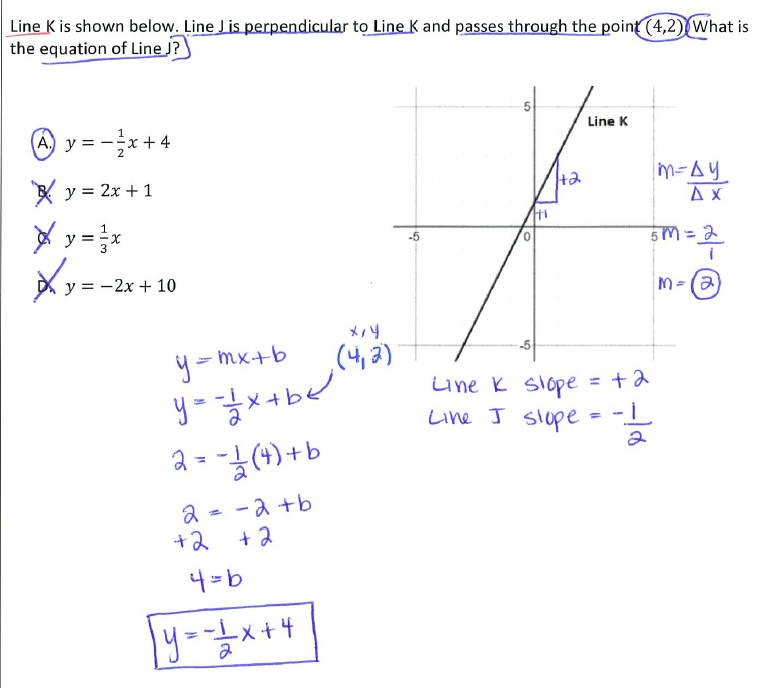 Line K is shown below. Line J is perpendicular to Line K and passes through the point (4,2). What is
the equation of Line J?
A. y = -1/2x + 4
B. y = 2x + 1
C. y = 1/3x
D. y = -2x + 10
5
Line K
+2
+1
-5
0
5
-5
m = Δy/Δx
m = 2/1
m = 2
x, y
(4, 2)
Line K slope = +2
Line J slope = -1/2
y = mx + b
y = -1/2x + b
2 = -1/2(4) + b
2 = -2 + b
+2 +2
4 = b
y = -1/2x + 4